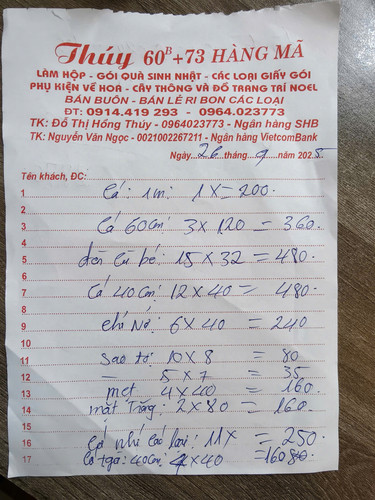 Thúy 60B+73 HÀNG MÃ
LÀM HỘP - GÓI QUÀ SINH NHẬT - CÁC LOẠI GIẤY GÓI
PHỤ KIỆN VỀ HOA - CÂY THÔNG VÀ ĐỒ TRANG TRÍ NOEL
BÁN BUÔN - BÁN LẺ RI BON CÁC LOẠI
ĐT: 0914.419 293 - 0964.023773
TK: Đỗ Thị Hồng Thúy - 0964023773 - Ngân hàng SHB
TK: Nguyễn Văn Ngọc - 0021002267211 - Ngân hàng VietcomBank
Ngày 26 tháng 9 năm 2025
Tên khách, ĐC:
1 Cá: 1m: 1X = 200.
2
3 Cá 60cm 3 x 120 = 360.
4
5 đèn cũ bé: 15 x 32 = 480.
6
7 Cá 40cm: 12 x 40 = 480
8
9 chú Nớ: 6 x 40 = 240
10
11 Sao tờ: 10 x 8 = 80
12 — 5 x 7 = 35
13 met 4 x 40 = 160.
14 mặt Trăng: 2 x 80 = 160.
15
16 Cá nhí các loại: 11x = 250.
17 40cm: 4 x 40 = 160